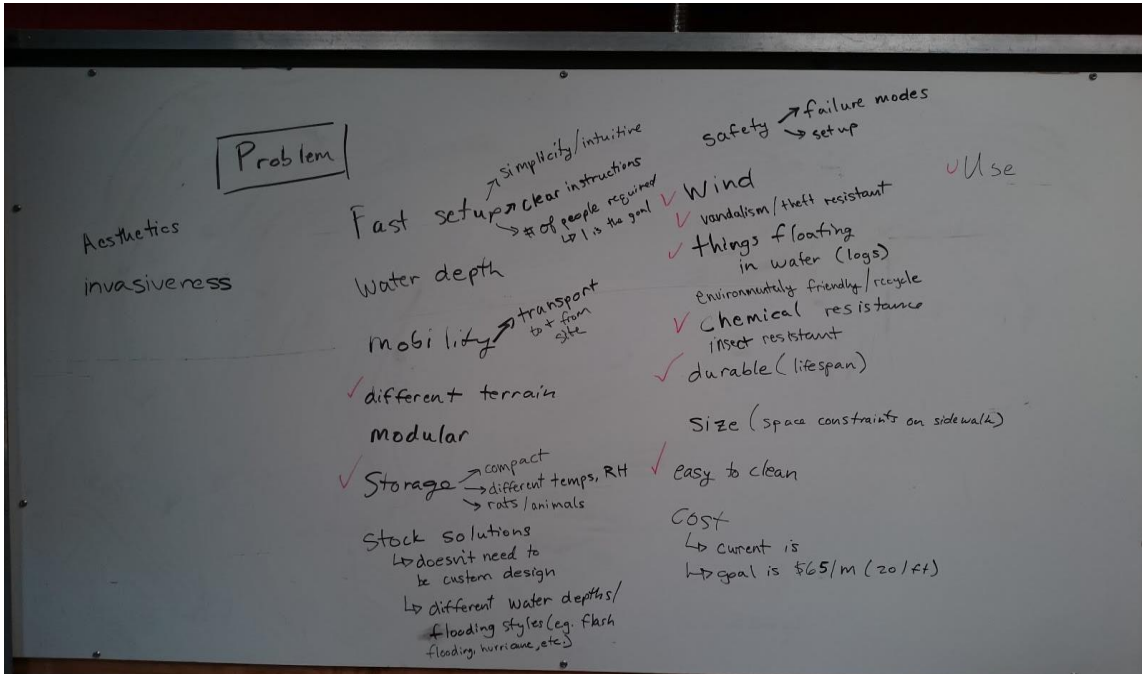 Problem
Aesthetics
invasiveness
Fast setup
simplicity/intuitive
clear instructions
# of people required
↳ 1 is the goal
Water depth
mobility
transport
to + from
site
✓ different terrain
modular
✓ Storage
compact
different temps, RH
rats/animals
Stock solutions
↳ doesn't need to
be custom design
↳ different water depths/
flooding styles (eg. flash
flooding, hurricane, etc.)
safety
failure modes
set up
✓ Wind
✓ vandalism/theft resistant
✓ things floating
in water (logs)
environmentaly friendly/recycle
✓ chemical resistance
insect resistant
✓ durable (lifespan)
Size (space constraints on sidewalk)
✓ easy to clean
Cost
↳ current is
↳ goal is $65/m (20/ft)
✓ Use